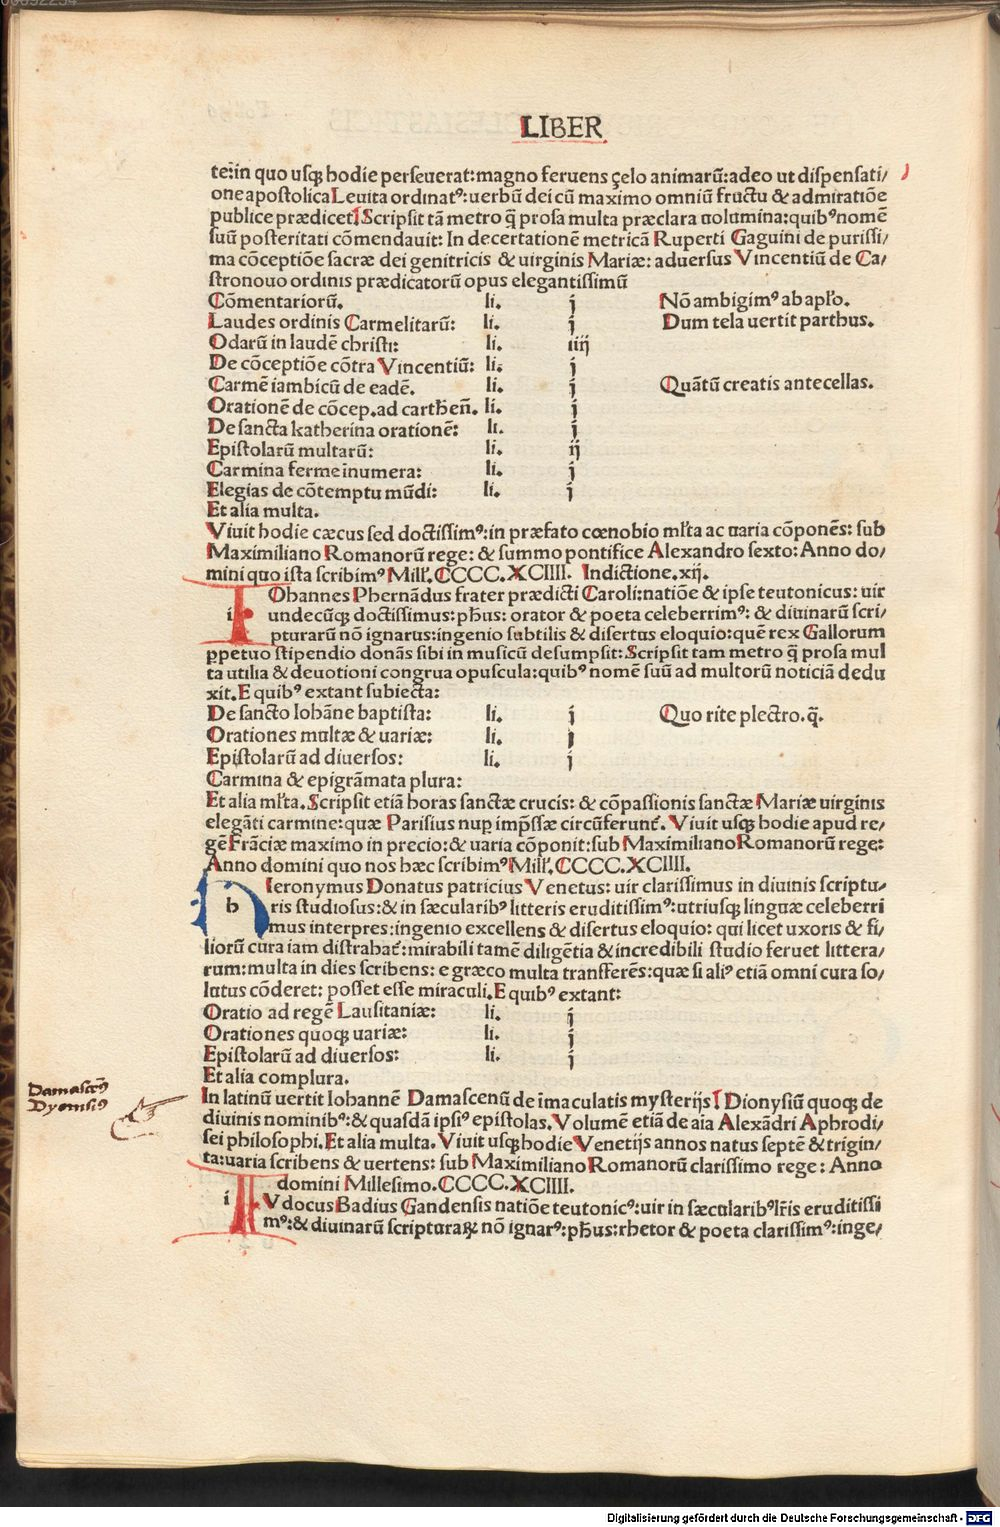 LIBER
te:in quo usq̃ hodie perseuerat:magno feruens çelo animarū:adeo ut dispensati/
one apostolica Leuita ordinatꝰ:uerbū dei cū maximo omniū fructu & admiratiōe
publice prædicet Scripsit tā metro q̄ prosa multa præclara uolumina:quibꝰ nomē
suū posteritati cōmendauit: In decertationē metricā Ruperti Gaguini de purissi/
ma cōceptiōe sacræ dei genitricis & uirginis Mariæ: aduersus Vincentiū de Ca/
stronouo ordinis prædicatorū opus elegantissimū
Cōmentariorū. li. j Nō ambigimꝰ ab apło.
Laudes ordinis Carmelitarū: li. j Dum tela uertit parthus.
Odarū in laudē christi: li. iiij
De cōceptiōe cōtra Vincentiū: li. j
Carmē iambicū de eadē. li. j Quātū creatis antecellas.
Orationē de cōcep.ad carthen̄. li. j
De sancta katherina orationē: li. j
Epistolarū multarū: li. ij
Carmina ferme īnumera: li. j
Elegias de cōtemptu mūdi: li. j
Et alia multa.
Viuit hodie cæcus sed doctissimꝰ:in præfato cœnobio mľta ac uaria cōponēs: sub
Maximiliano Romanorū rege: & summo pontifice Alexandro sexto: Anno do/
mini quo ista scribimꝰ Milľ. CCCC.XCIIII. Indictione.xij.
i IOhannes Phernādus frater prædicti Caroli:natiōe & ipse teutonicus: uir
undecūq̃ doctissimus:pħus: orator & poeta celeberrimꝰ: & diuinarū scri/
pturarū nō ignarus:ingenio subtilis & disertus eloquio:quē rex Gallorum
ꝑpetuo stipendio donās sibi in musicū desumpsit: Scripsit tam metro q̄ prosa mul
ta utilia & deuotioni congrua opuscula:quibꝰ nomē suū ad multorū noticiā dedu
xit.E quibꝰ extant subiecta:
De sancto Iohāne baptista: li. j Quo rite plectro.q̄.
Orationes multæ & uariæ: li. j
Epistolarū ad diuersos: li. j
Carmina & epigrāmata plura:
Et alia mľta.Scripsit etiā horas sanctæ crucis: & cōpassionis sanctæ Mariæ uirginis
elegāti carmine:quæ Parisius nuꝑ imp̄ssæ circūferunť. Viuit usq̃ hodie apud re/
gē Frāciæ maximo in precio:& uaria cōponit:sub Maximiliano Romanorū rege:
Anno domini quo nos hæc scribimꝰ Milľ.CCCC.XCIIII.
h Ieronymus Donatus patricius Venetus: uir clarissimus in diuinis scriptu/
ris studiosus:& in sæcularibꝰ litteris eruditissimꝰ:utriusq̃ linguæ celeberri
mus interpres:ingenio excellens & disertus eloquio: qui licet uxoris & fi/
liorū cura iam distrahať:mirabili tamē diligētia & incredibili studio feruet littera/
rum:multa in dies scribens: e græco multa transferēs:quæ si aliꝰ etiā omni cura so/
lutus cōderet: posset esse miraculi.E quibꝰ extant:
Oratio ad regē Lausitaniæ: li. j
Orationes quoq̃ uariæ: li. j
Epistolarū ad diuersos: li. j
Et alia complura.
Damascēꝰ
Dyonisiꝰ
In latinū uertit Iohannē Damascenū de īmaculatis mysterijs Dionysiū quoq̃ de
diuinis nominibꝰ:& quasdā ipsiꝰ epistolas. Volumē etiā de aīa Alexādri Aphrodi/
sei philosophi.Et alia multa. Viuit usq̃ hodie Venetijs annos natus septē & trigin/
ta:uaria scribens & uertens: sub Maximiliano Romanorū clarissimo rege: Anno
domini Millesimo.CCCC.XCIIII.
i Vdocus Badius Gandensis natiōe teutonicꝰ:uir in sæcularibꝰ lr̄is eruditissi
mꝰ:& diuinarū scripturaꝝ nō ignarꝰ:pħus:rhetor & poeta clarissimꝰ:inge/
Digitalisierung gefördert durch die Deutsche Forschungsgemeinschaft - DFG